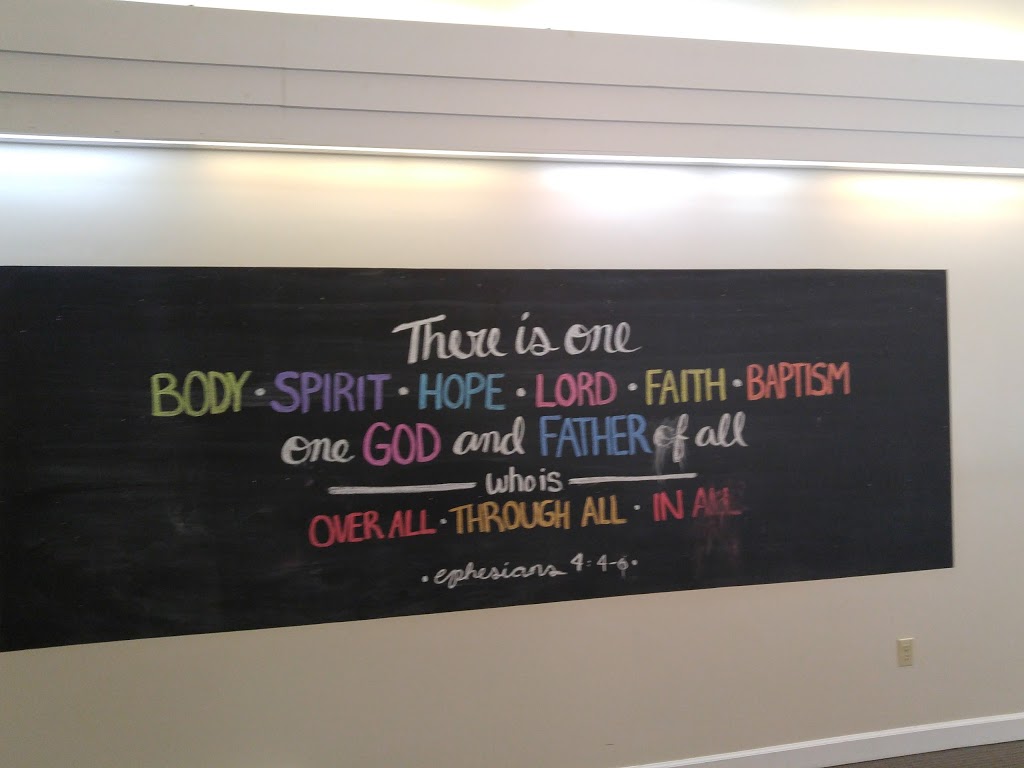 There is one
BODY · SPIRIT · HOPE · LORD · FAITH · BAPTISM
one GOD and FATHER of all
who is
OVER ALL · THROUGH ALL · IN ALL
· ephesians 4:4-6 ·